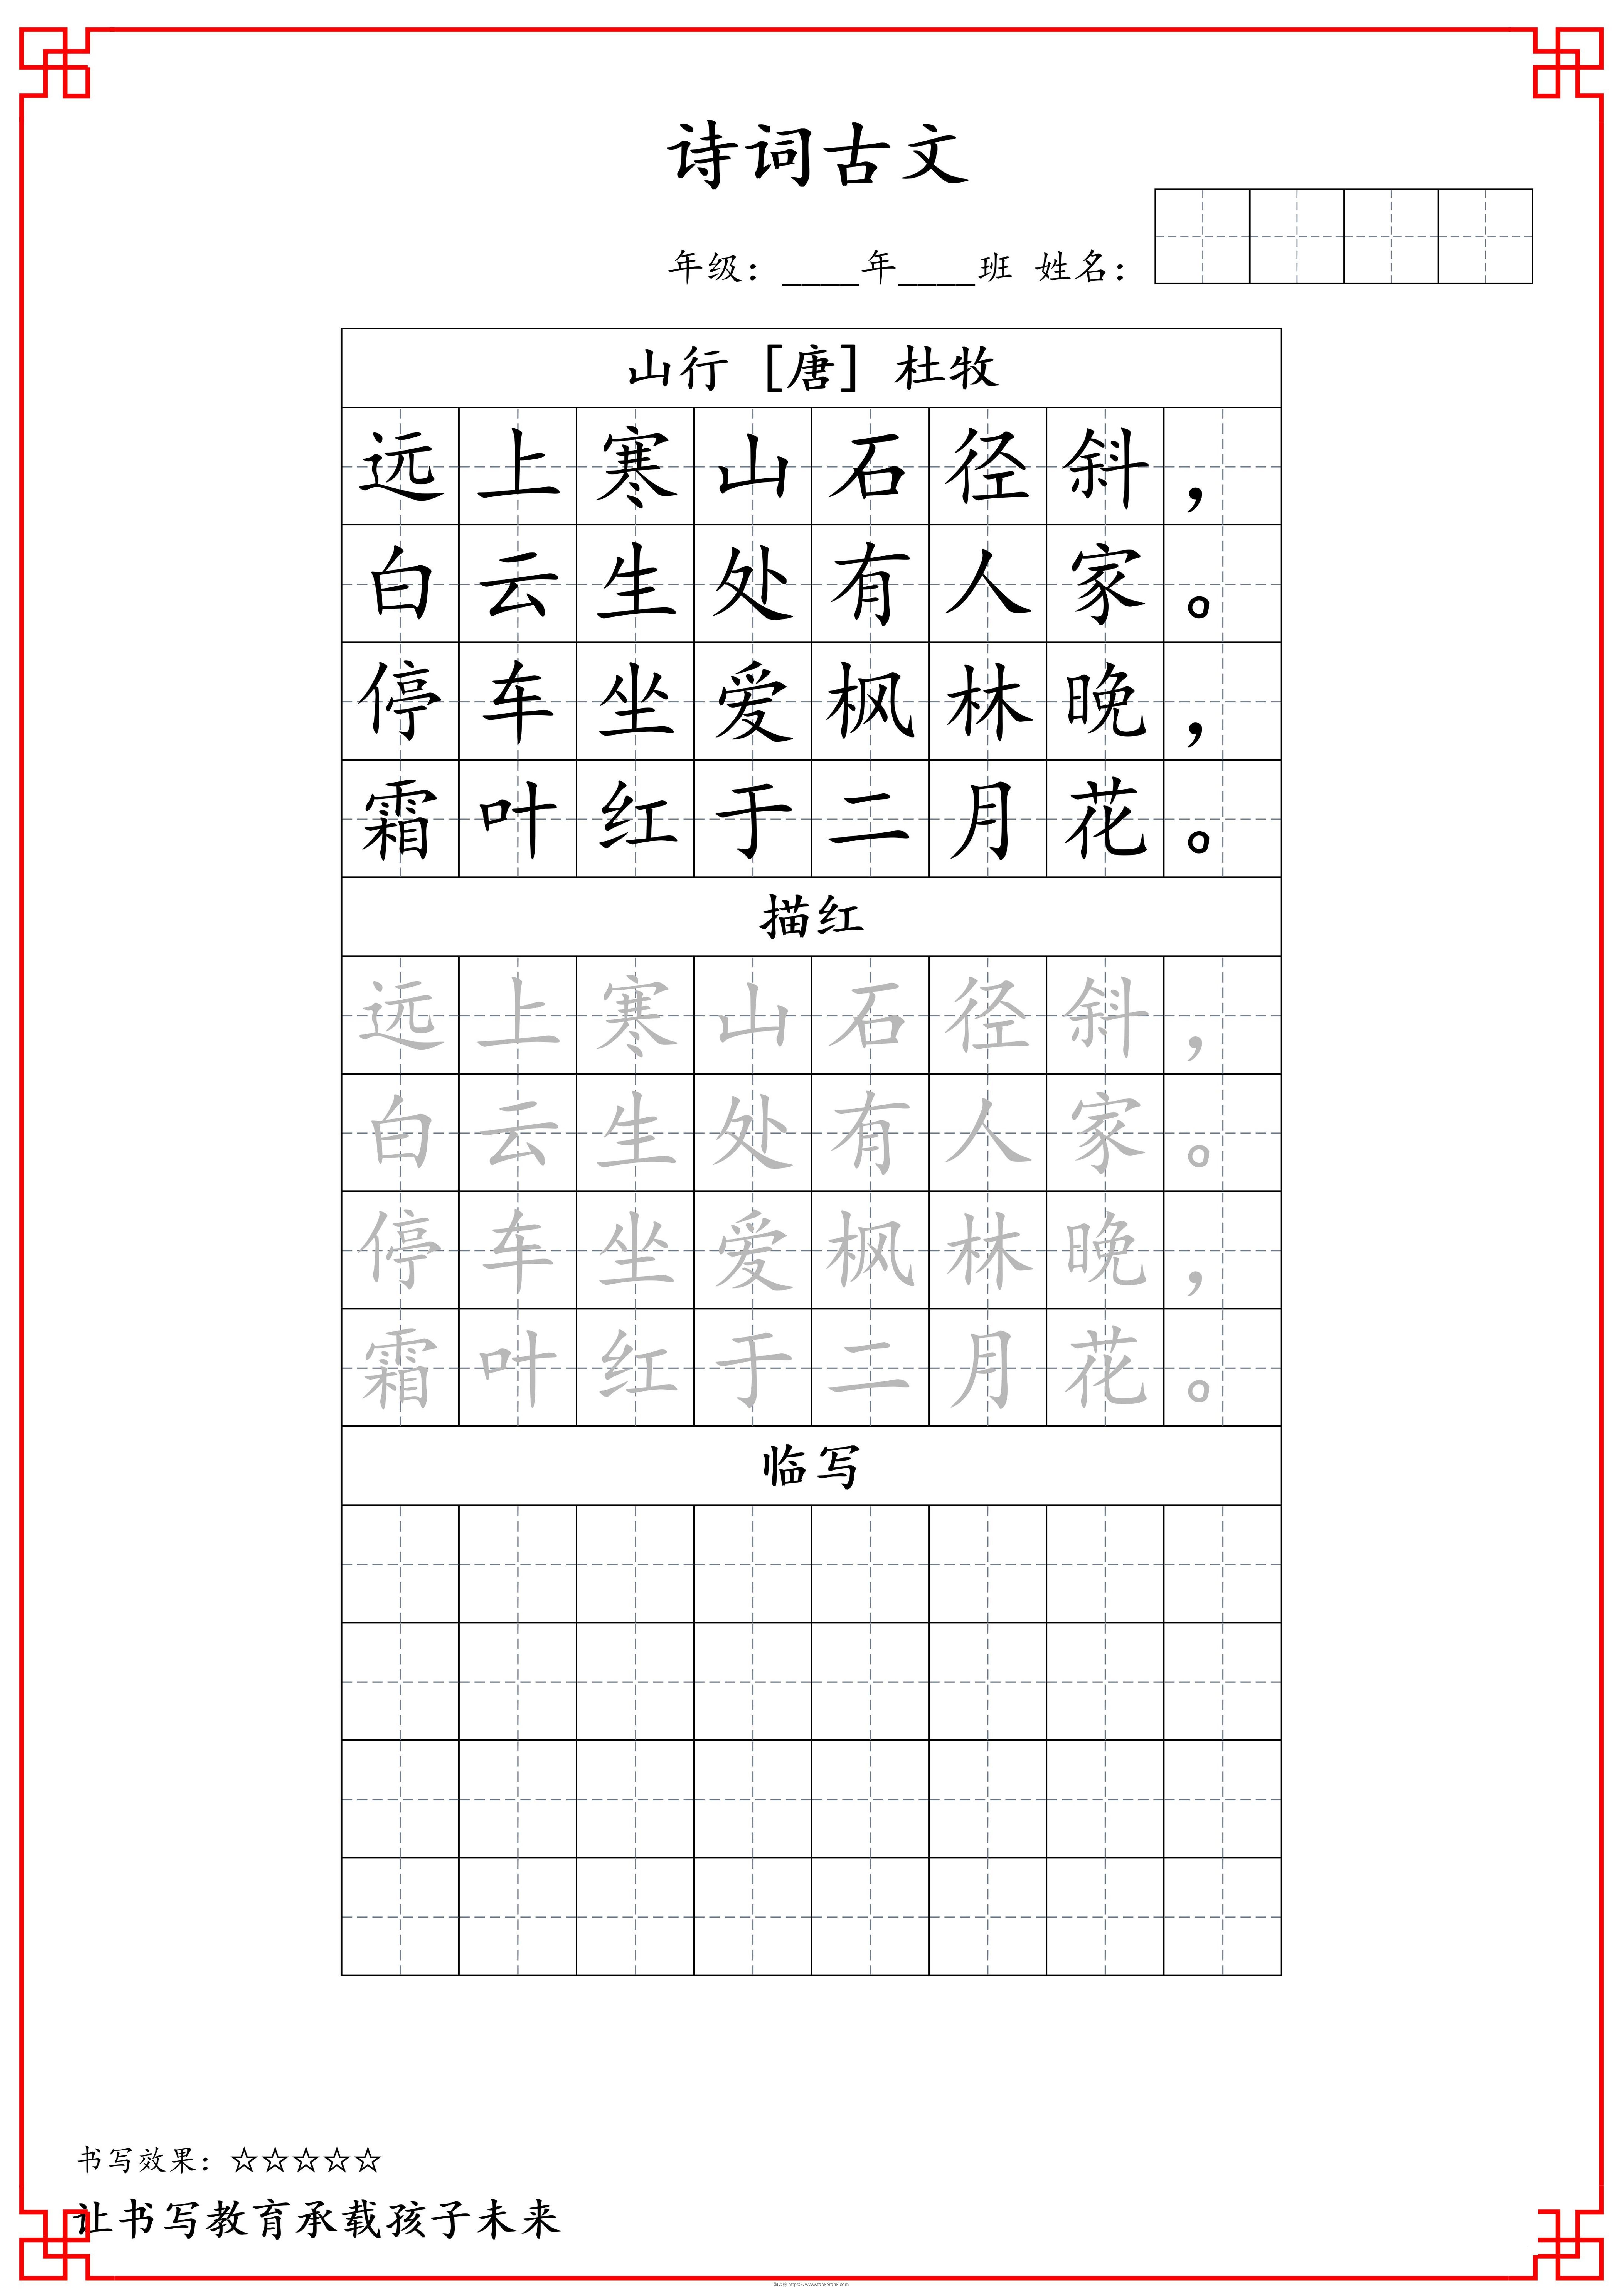 诗词古文
年级：____年____班 姓名：
山行 [唐] 杜牧
远上寒山石径斜，
白云生处有人家。
停车坐爱枫林晚，
霜叶红于二月花。
描红
远上寒山石径斜，
白云生处有人家。
停车坐爱枫林晚，
霜叶红于二月花。
临写
书写效果：☆☆☆☆☆
让书写教育承载孩子未来